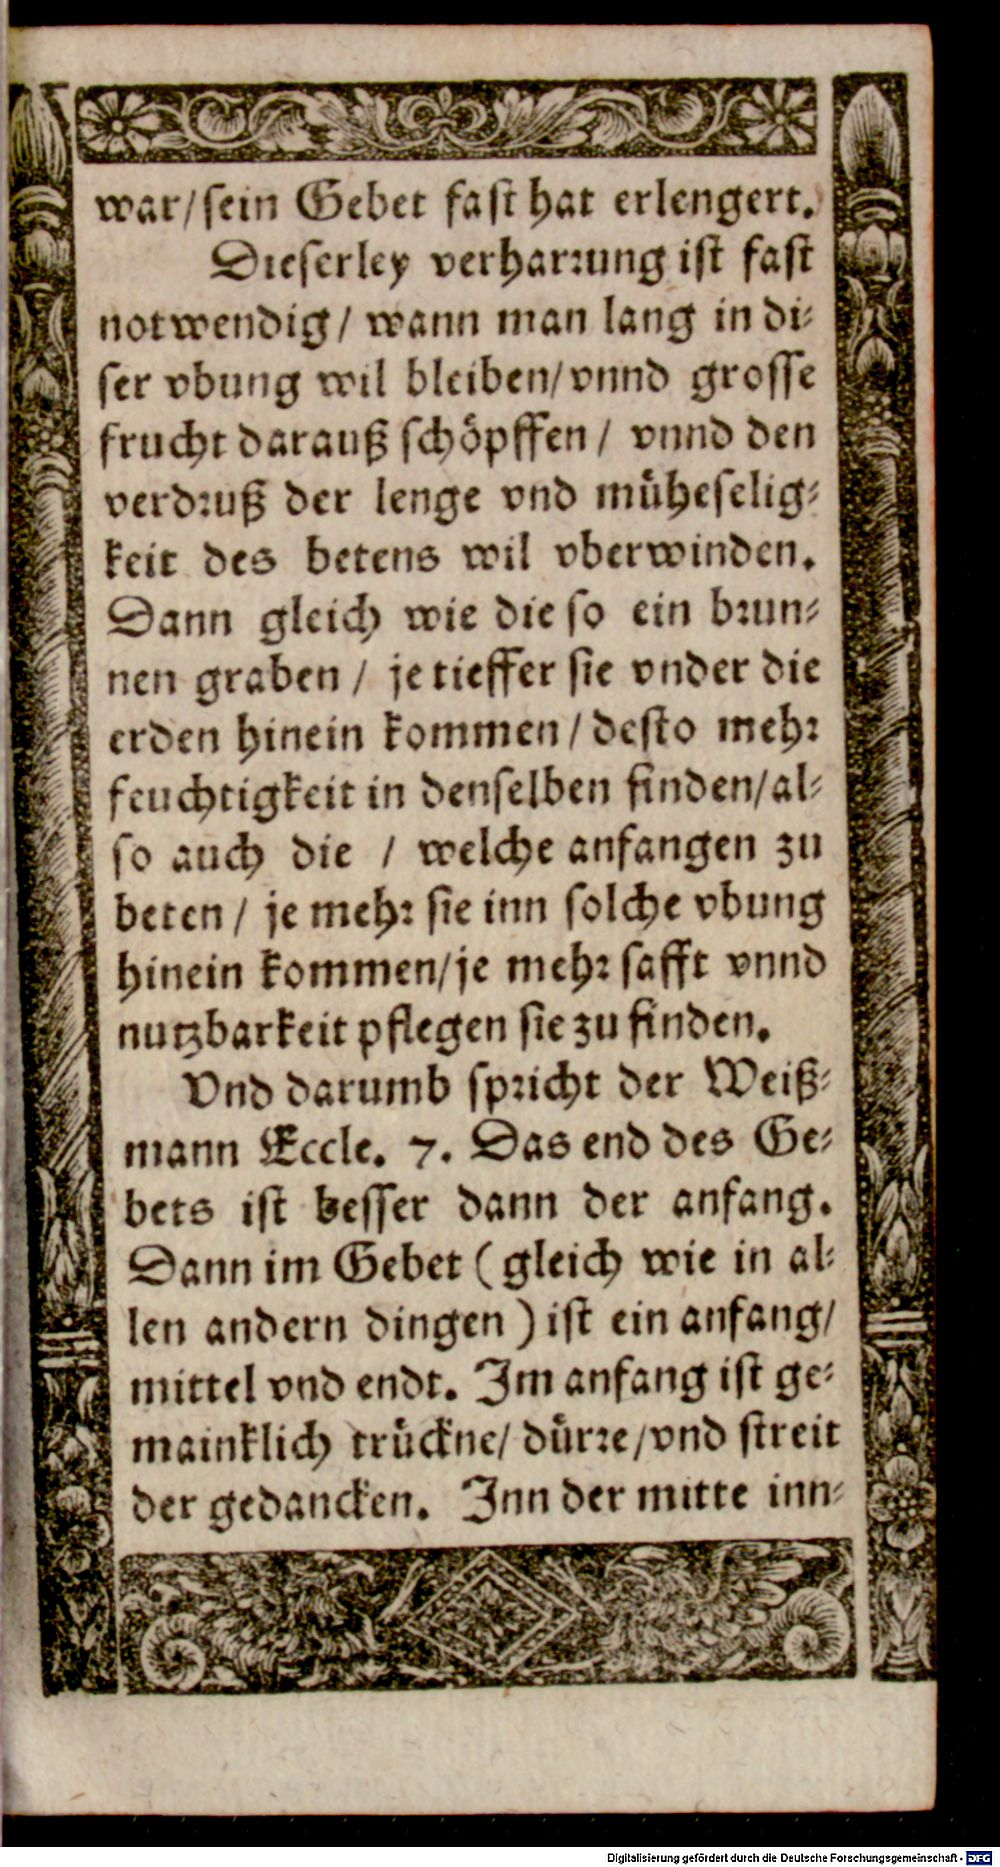 war/sein Gebet fast hat erlengert.
Dieserley verharrung ist fast
notwendig/ wann man lang in di-
ser vbung wil bleiben/vnnd grosse
frucht darauß schöpffen/ vnnd den
verdruß der lenge vnd mühes­elig-
keit des betens wil vberwinden.
Dann gleich wie die so ein brun-
nen graben/ je tieffer sie vnder die
erden hinein kommen/desto mehr
feuchtigkeit in denselben finden/al-
so auch die / welche anfangen zu
beten/ je mehr sie inn solche vbung
hinein kommen/je mehr safft vnnd
nutzbarkeit pflegen sie zu finden.
Vnd darumb spricht der Weiß-
mann Eccle. 7. Das end des Ge-
bets ist besser dann der anfang.
Dann im Gebet (gleich wie in al-
len andern dingen) ist ein anfang/
mittel vnd endt. Im anfang ist ge-
mainklich trückne/ dürre/vnd streit
der gedancken. Inn der mitte inn-
Digitalisierung gefördert durch die Deutsche Forschungsgemeinschaft - DFG